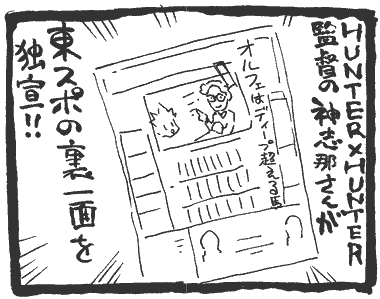 HUNTER×HUNTER
監督の神志那さんが
オルフェはディープ超える馬
東スポの裏一面を
独宣!!